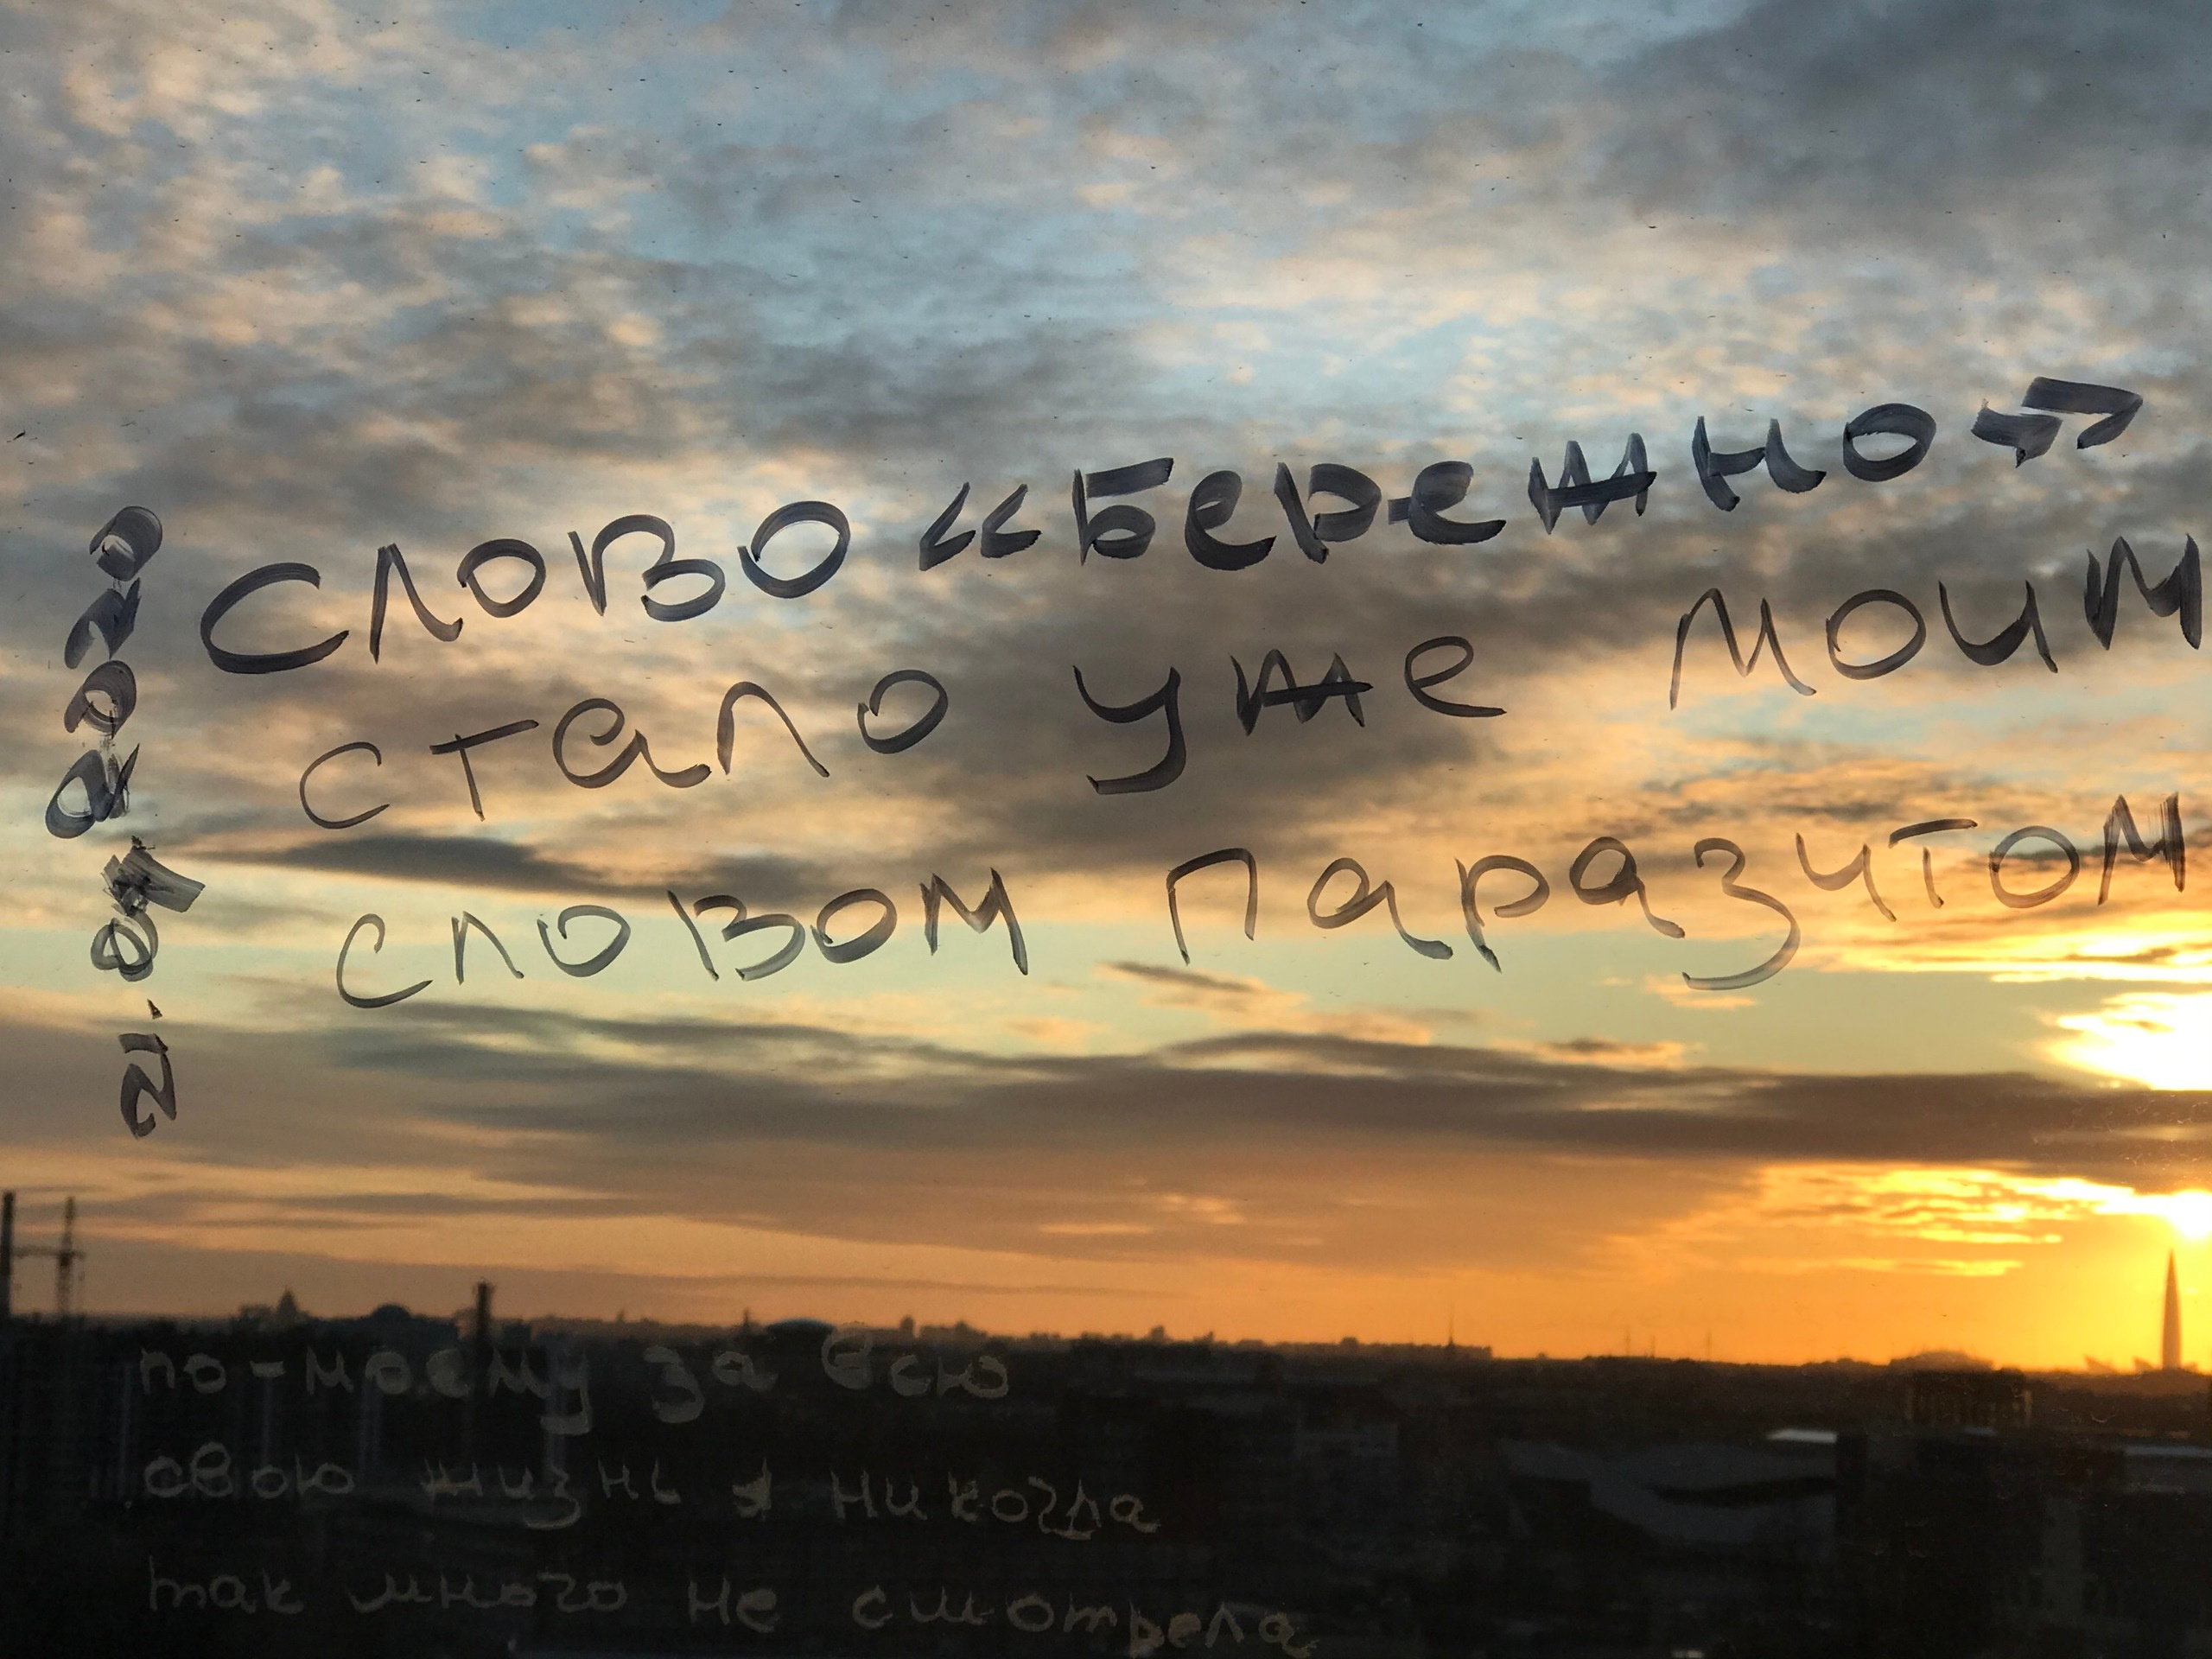 Слово «Бережно»
стало уже моим
словом паразитом
по-моему за всю
свою жизнь я никогда
так много не смотрела